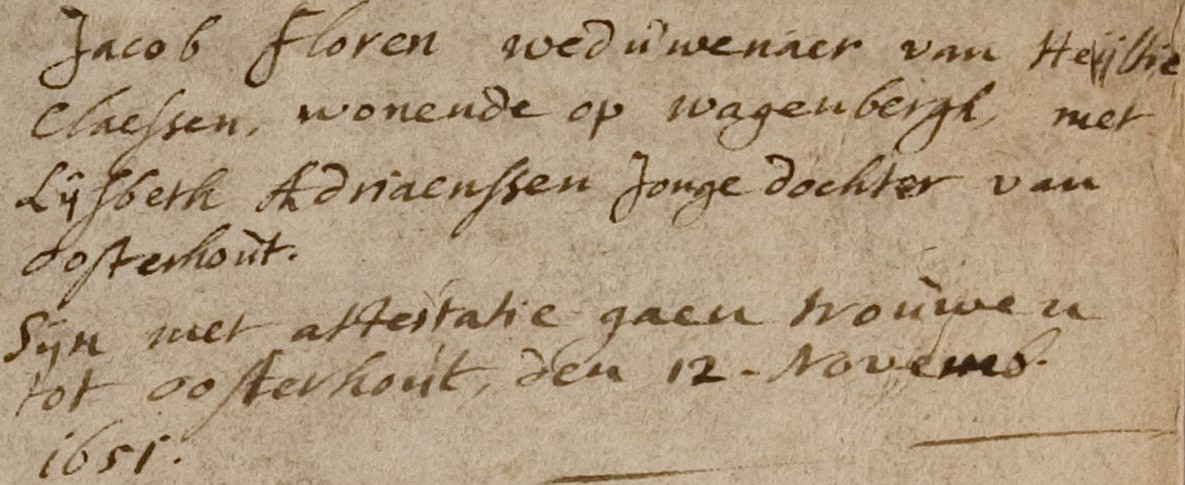 Jacob Floren weduwenaer van Heijltie
Claessen, wonende op wagenbergh, met
Lijsbeth Adriaenssen Jonge dochter van
oosterhout.
Sijn met attestatie gaen trouwen
tot oosterhout, den 12 - Novemb.
1651.